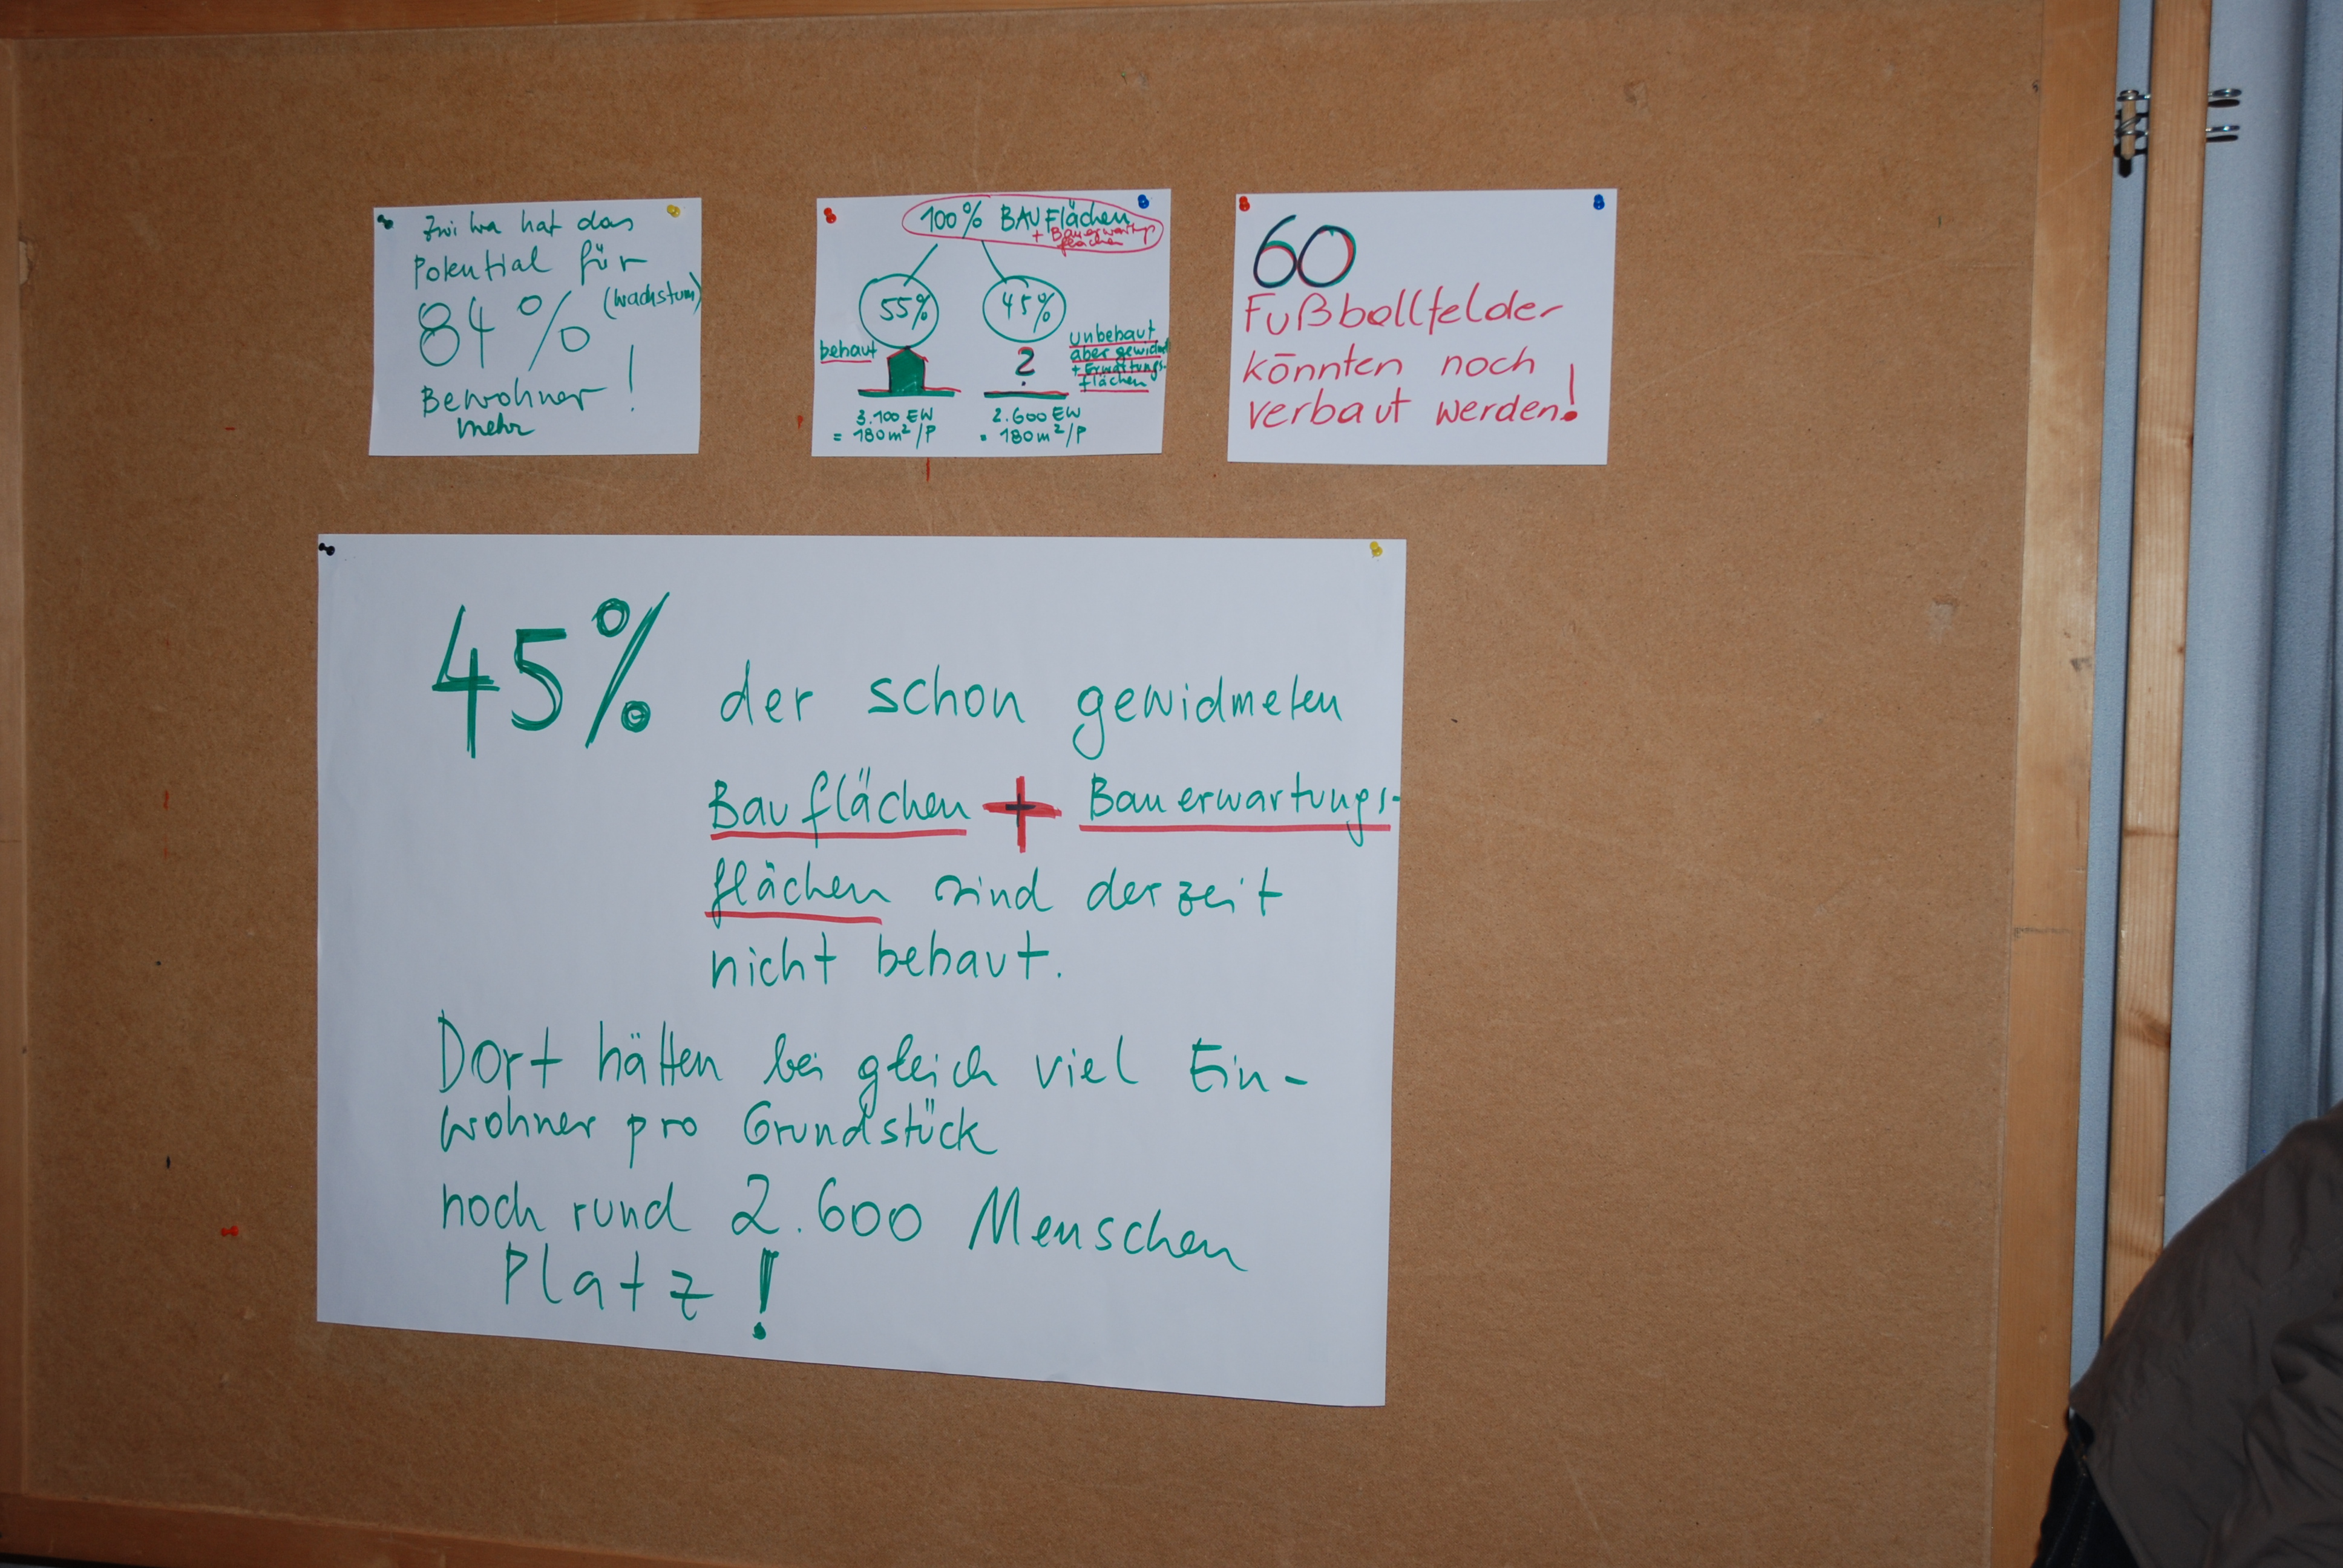 Zwi wa hat das
Potential für
84% (Wachstum)
Bewohner!
mehr
100% BAUFlächen
+ Bauerwartungs
flächen
55% 45%
behaut
?
unbebaut
aber gewidmet
+ Erwartungs-
flächen
3.100 EW
= 180m²/P
2.600 EW
= 180m²/P
60
Fußballfelder
könnten noch
verbaut werden!
45% der schon gewidmeten
Bauflächen + Bauerwartungs-
flächen sind derzeit
nicht bebaut.
Dort hätten bei gleich viel Ein-
wohner pro Grundstück
noch rund 2.600 Menschen
Platz!